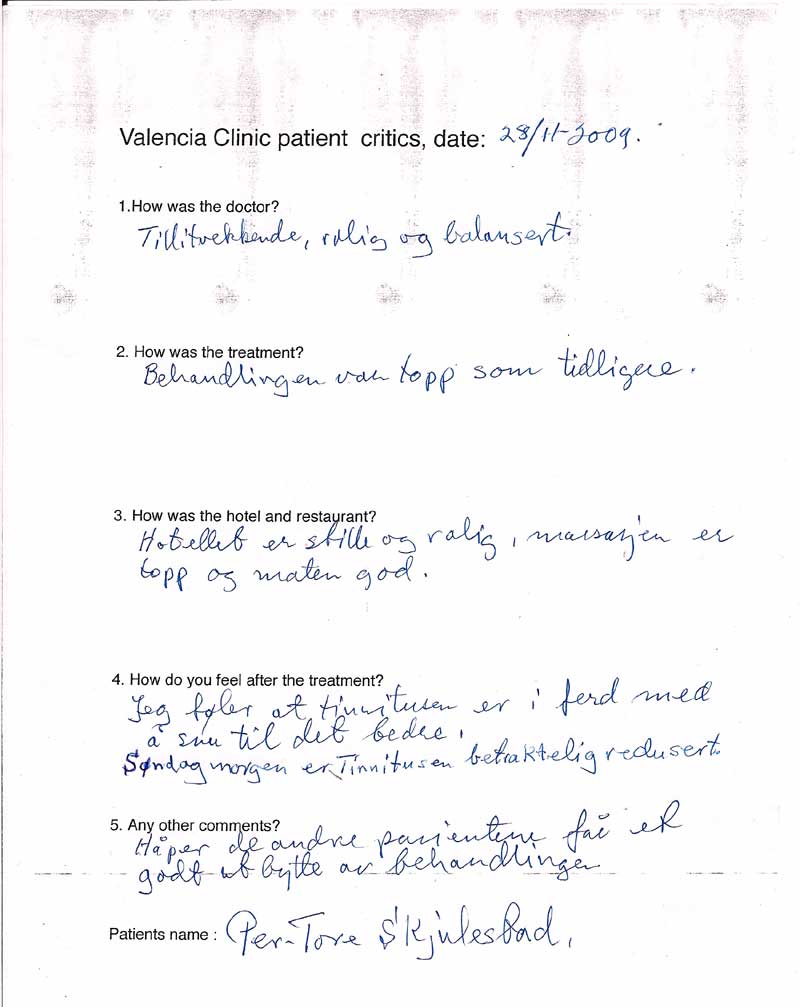 Valencia Clinic patient critics, date: 28/11-2009.
1.How was the doctor?
Tillitvekkende, rolig og balansert.
2. How was the treatment?
Behandlingen var topp som tidligere.
3. How was the hotel and restaurant?
Hotellet er stille og rolig, massasjen er
topp og maten god.
4. How do you feel after the treatment?
Jeg føler at tinnitusen er i ferd med
å snu til det bedre.
Søndag morgen er Tinnitusen betraktelig redusert.
5. Any other comments?
Håper de andre pasientene får et
godt utbytte av behandlingen
Patients name : Per-Tore